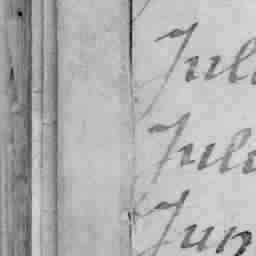 Juli
Juli
Jun